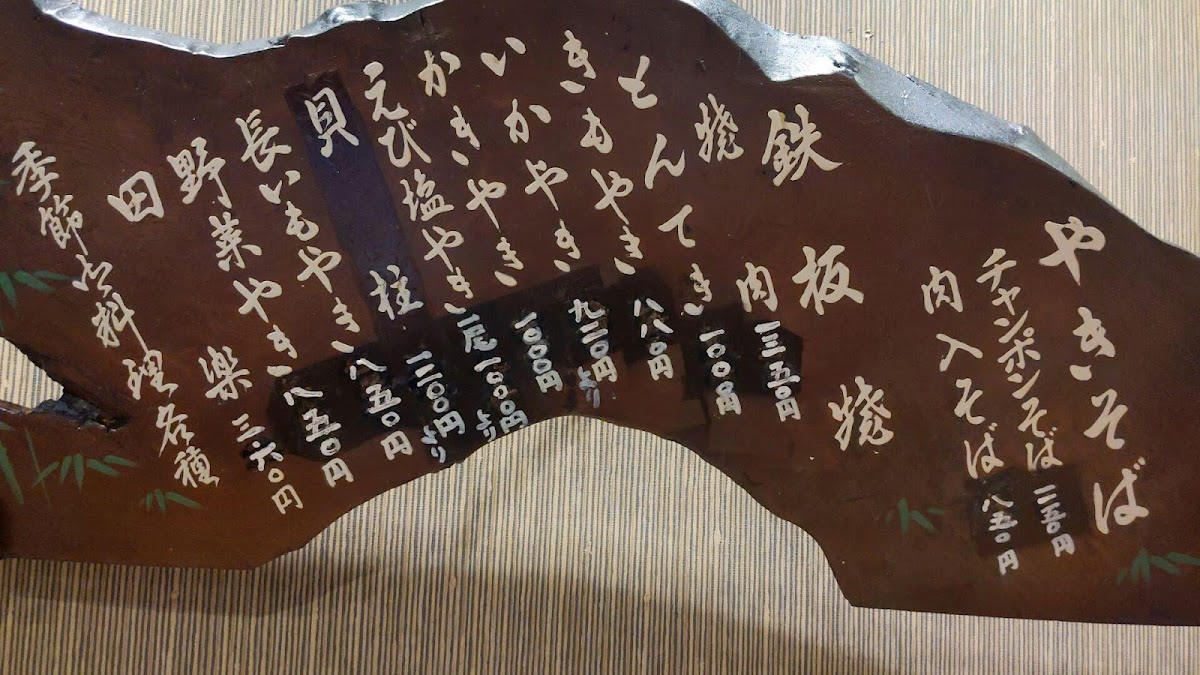 やきそば
チャンポンそば
肉入そば 八五〇円
鉄板焼
焼肉 一三五〇円
とんてき 一〇〇〇円
きもやき 八八〇円
いかやき 九二〇円より
かきやき 一〇〇〇円
えび塩やき 一尾一〇〇〇円より
貝柱 一二〇〇円より
長いもやき 八五〇円
野菜やき 八五〇円
田楽 三六〇円
季節の料理各種